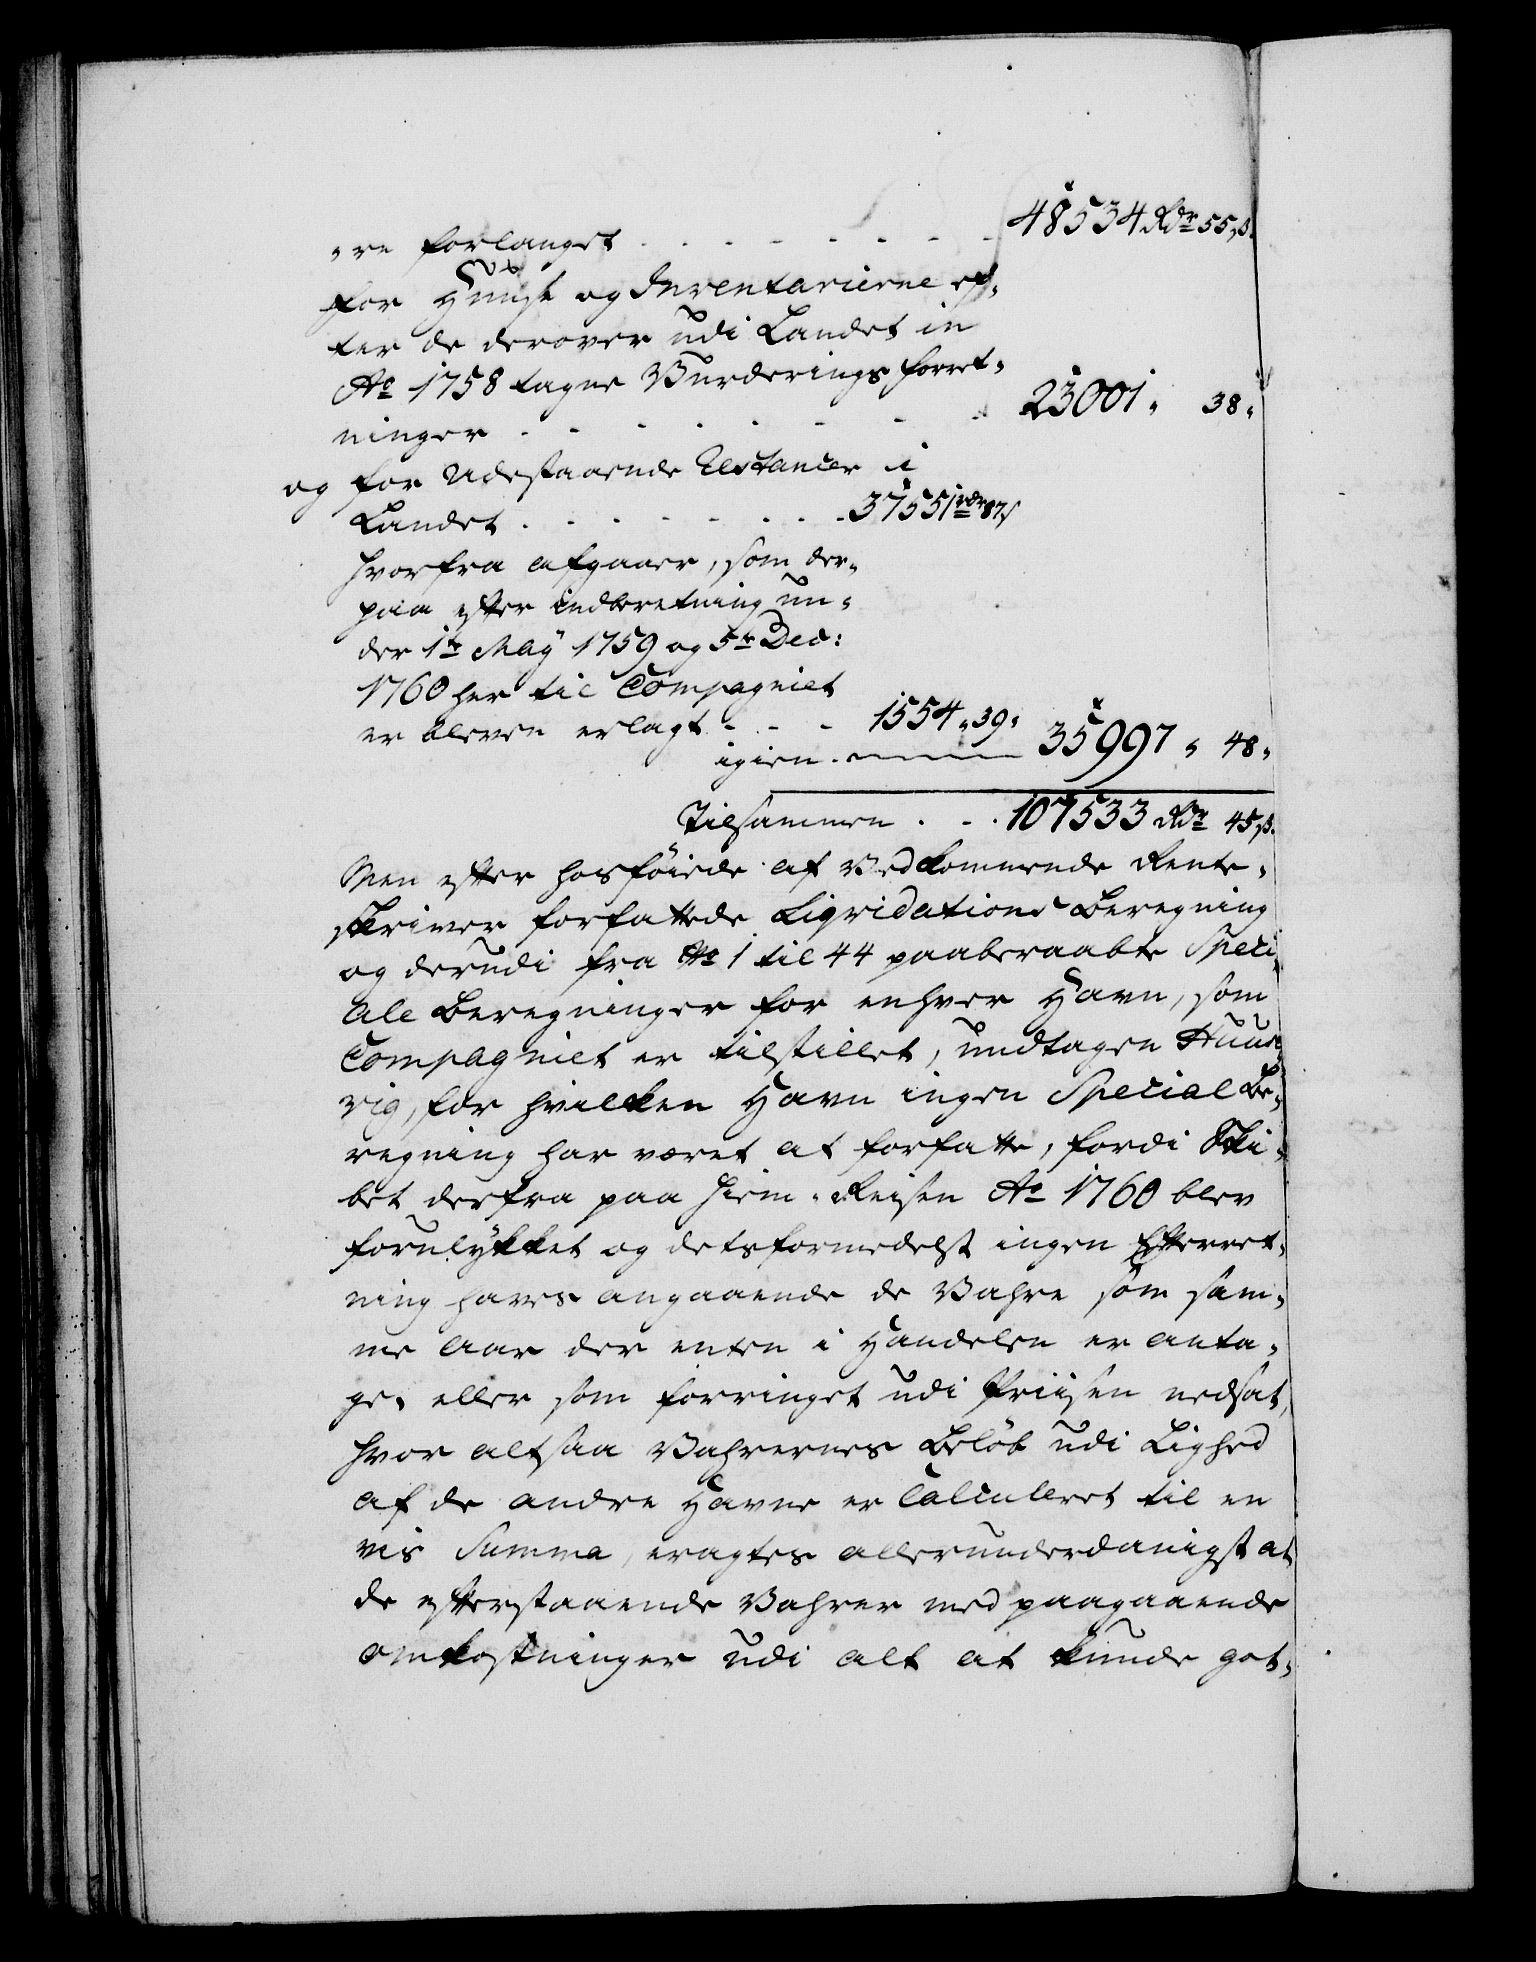 „re forlanget . . . . . . . . 48534 Rdr 55 ß.
for Huuse og Inventarierne ef„
ter de derover udi Landet in
Ao 1758 tagne Vurderings forret„
ninger . . . . . . . . 23001 „ 38 „
og for Udestaaende Restancer i
Landet . . . . . . . . 37551 rdr 87 ß
hvorfra afgaaer, som der„
paa efter indberetning un„
der 1te May 1759 og 5te Dec:
1760 her til Compagniet
er bleven erlagt . . . 1554 „ 39 „
igien . 35997 „ 48 „
Tilsammen . . . 107533 Rdr 45 ß.
Men efter hosföiede af Vedkommende Rente„
skriver forfattede Liqvidations Beregning
og derudi fra No 1 til 44 paaberaabte Speci„
ale Beregninger for enhver Havn, som
Compagniet er tilstillet, undtagen Huuse„
vig, for hvilken Havn ingen Special Be„
regning har været at forfatte, fordi Ski„
bet derfra paa Hiem„Reisen Ao 1760 blev
forulykket og detsformedelst ingen Efterret„
ning haves angaaende de Vahre som sam„
me Aar der enten i Handelen er anta„
ge, eller som forringet udi Priisen nedsat,
hvor altsaa Vahrernes Belöb udi Lighed
af de andre Havne er Calculeret til en
vis Summa, eragtes allerunderdanigst at
de efterstaaende Vahrer med paagaaende
omkostninger udi alt at kunde got„